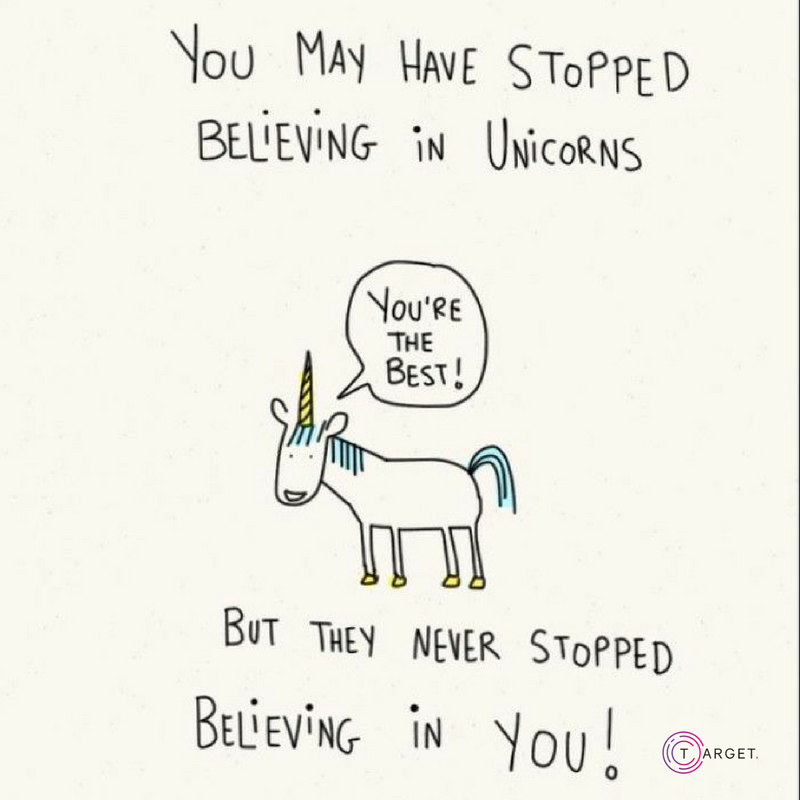 YOU MAY HAVE STOPPED
BELiEViNG iN UNiCORNS
YOU'RE
THE
BEST!
BUT THEY NEVER STOPPED
BELiEViNG iN YOU!
TARGET.